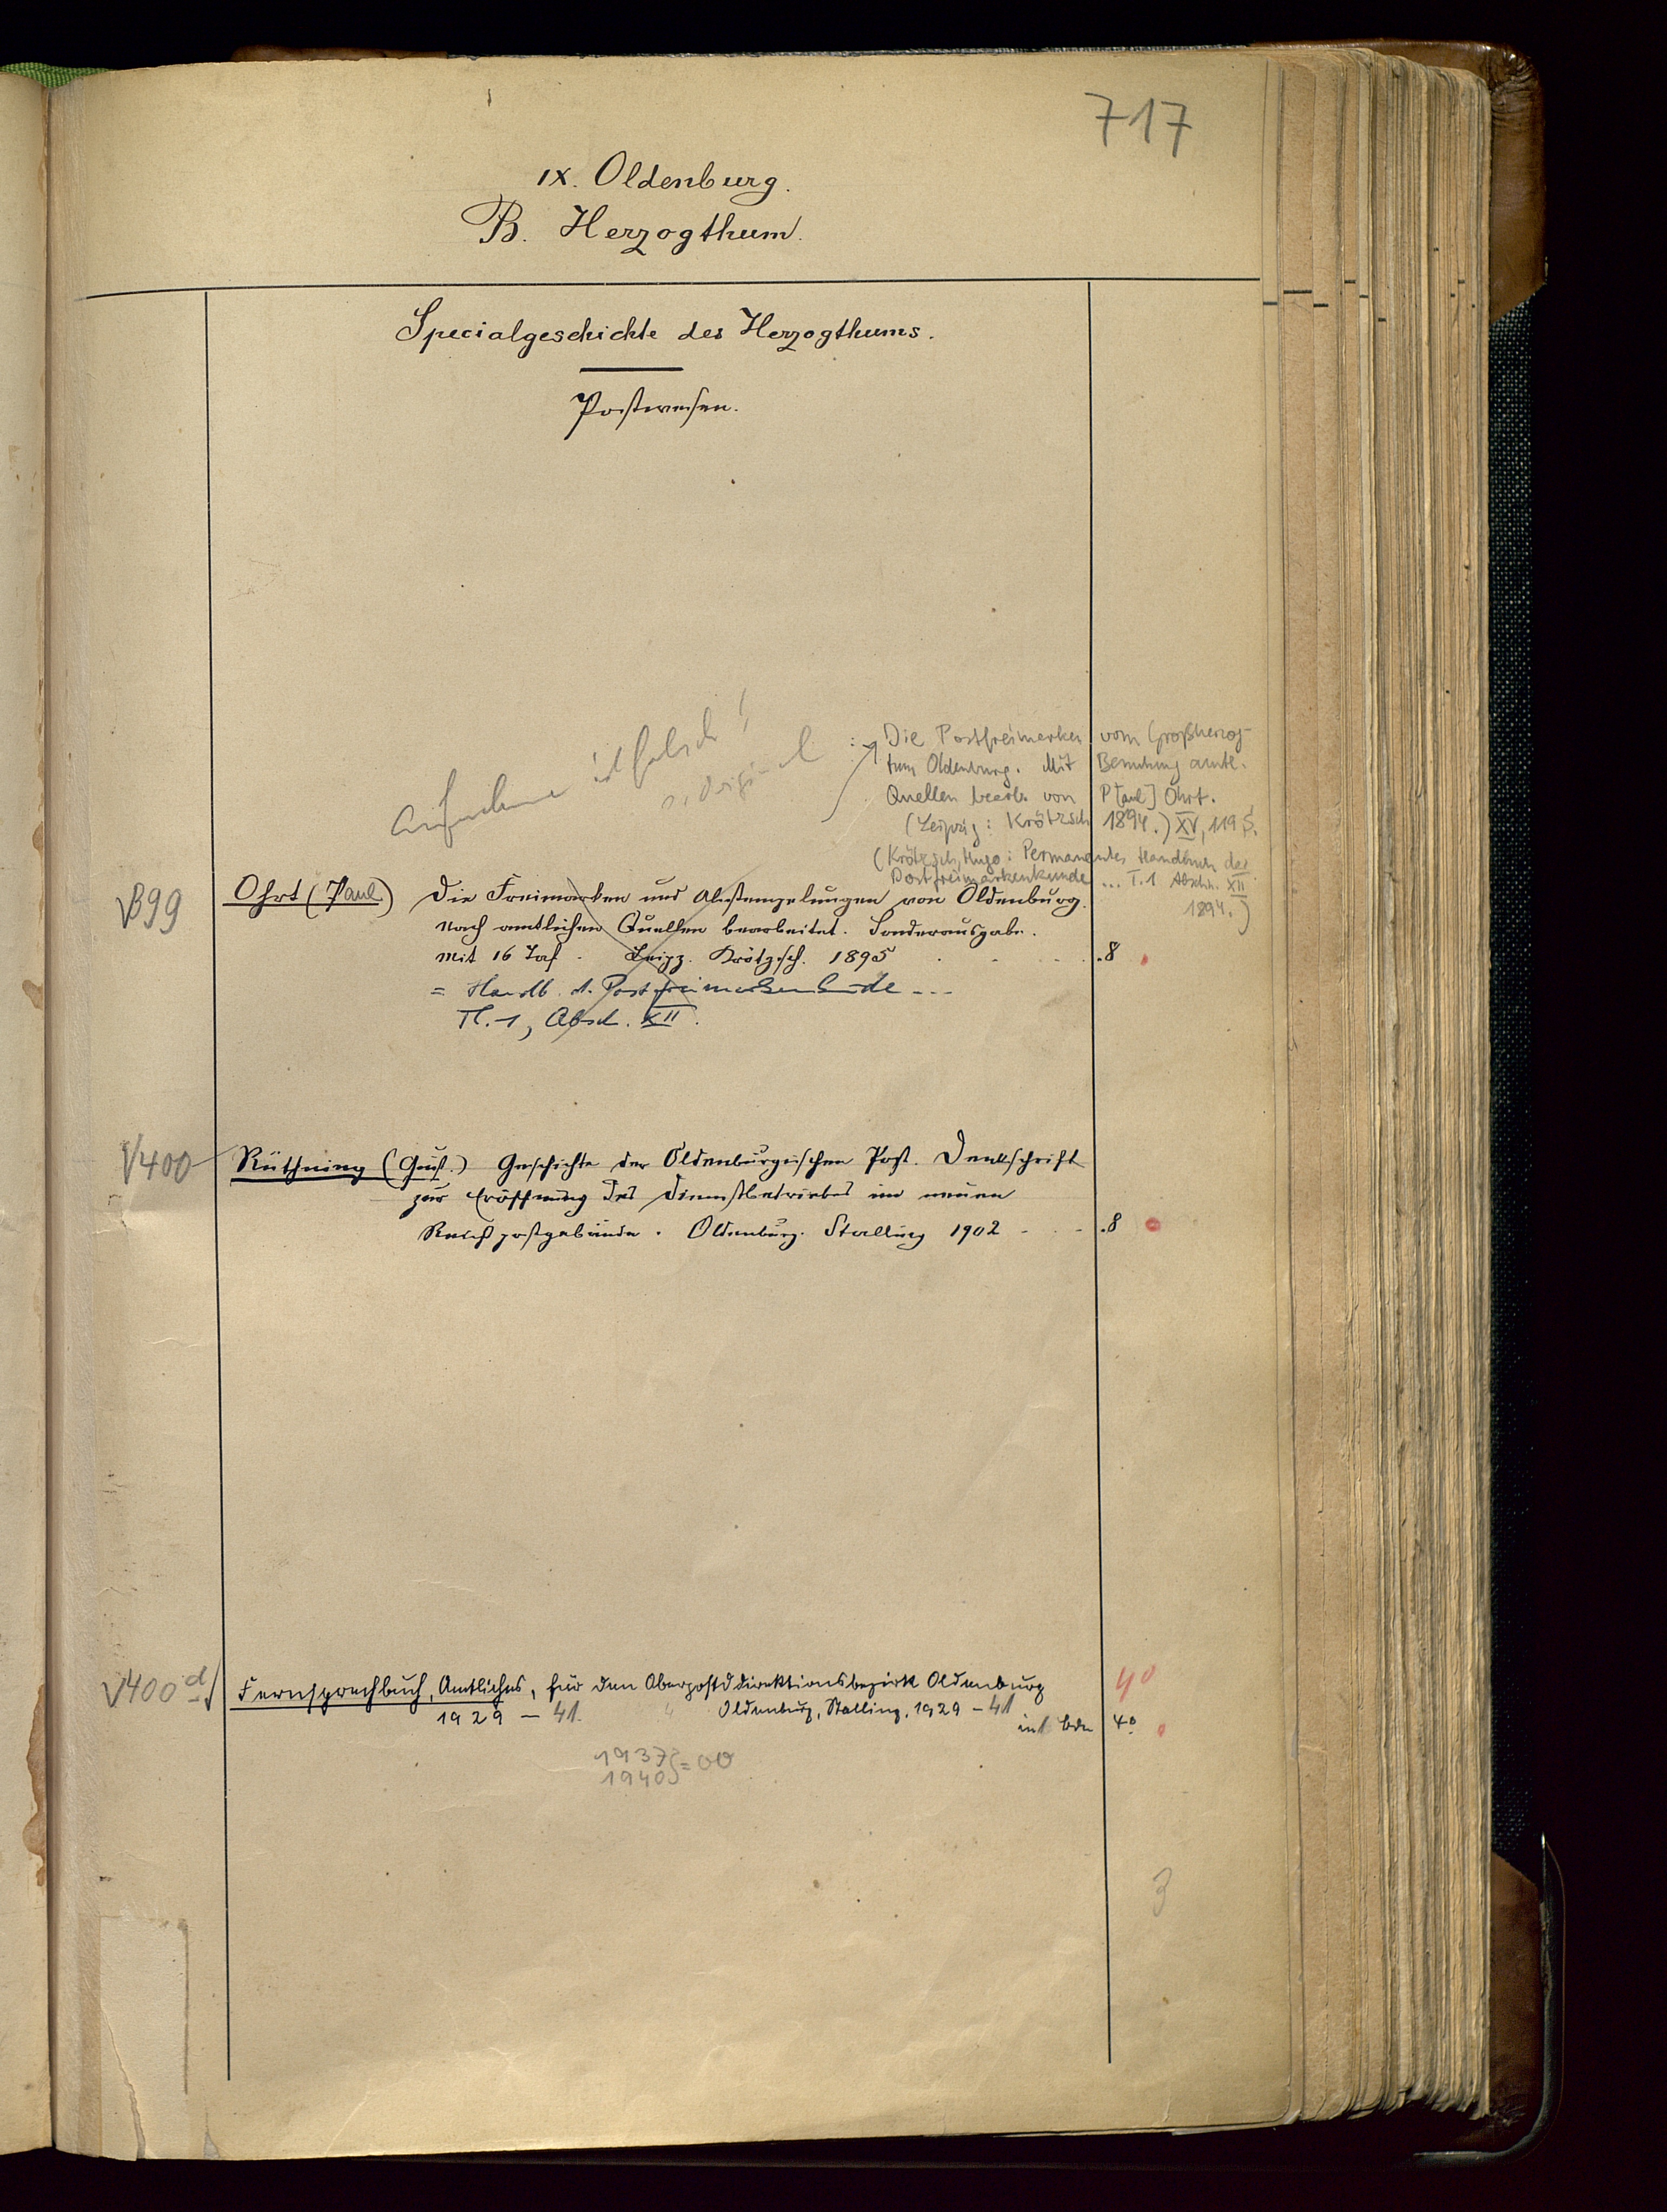 717
IX. Oldenburg.
B. Herzogthum.
Specialgeschichte des Herzogthums.
Postwesen.
Aufnahme ist falsch!
s. Original :
Die Postfreimarken vom Großherzog-
tum Oldenburg. Mit Benutzung amtl.
Quellen bearb. von P[aul] Ohrt.
(Leipzig: Krötzsch 1894.) XV, 119 S.
(Krötzsch, Hugo: Permanentes Handbuch der
Postfreimarkenkunde ... T. 1 Abschn. XII
1894.)
√399 Ohrt (Paul) Die Freimarken und Abstempelungen von Oldenburg.
Nach amtlichen Quellen bearbeitet. Sonderausgabe.
Mit 16 Taf. Leipz. Krötzsch. 1895 . 8
= Handb. d. Postfreimarkenkunde ...
Tl. 1, Absch. XII.
√400 Rüthning (Gust.) Geschichte der Oldenburgischen Post. Denkschrift
zur Eröffnung des Dienstbetriebes im neuen
Reichspostgebäude. Oldenburg. Stalling 1902 . 8
√400 d Fernsprechbuch, Amtliches, für den Oberpostdirektionsbezirk Oldenburg 4°
1929 – 41. Oldenburg, Stalling, 1929 – 41
in 1 Bdn 4°
1937
1940 } = 00
3